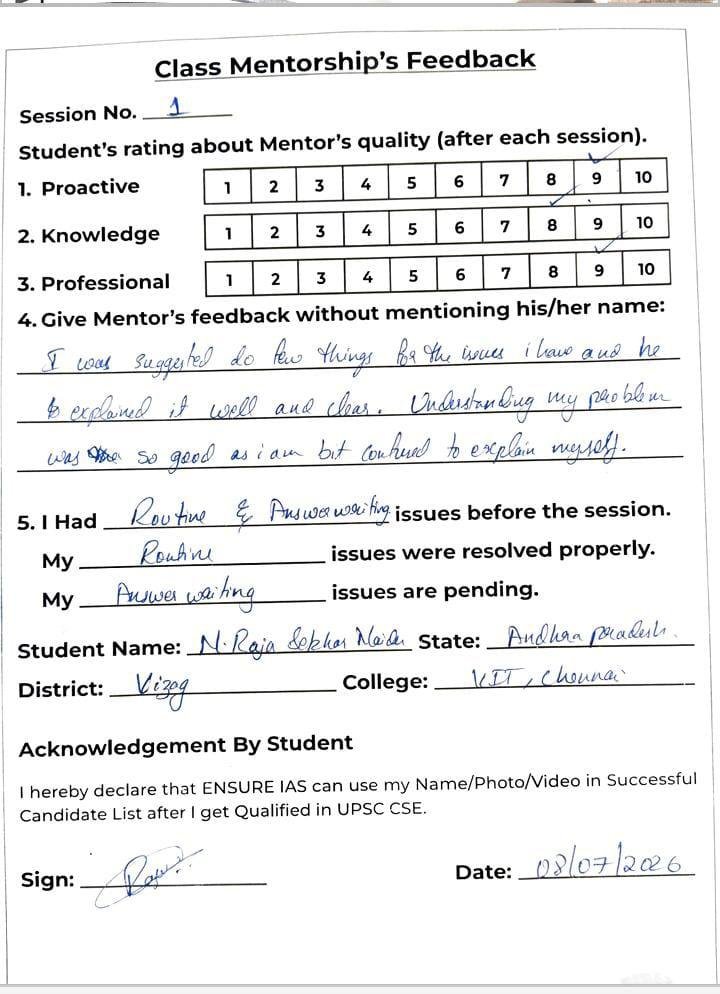 Class Mentorship's Feedback
Session No. 1
Student's rating about Mentor's quality (after each session).
1. Proactive 1 2 3 4 5 6 7 8 9 10
2. Knowledge 1 2 3 4 5 6 7 8 9 10
3. Professional 1 2 3 4 5 6 7 8 9 10
4. Give Mentor's feedback without mentioning his/her name:
I was suggested do few things for the issues i have and he
explained it well and clear. Understanding my problem
was so good as i am bit confused to explain myself.
5. I Had Routine & Answer writing issues before the session.
My Routine issues were resolved properly.
My Answer writing issues are pending.
Student Name: N. Raja Sekhar Naidu State: Andhra pradesh.
District: Vizag College: VIT, Chennai
Acknowledgement By Student
I hereby declare that ENSURE IAS can use my Name/Photo/Video in Successful
Candidate List after I get Qualified in UPSC CSE.
Sign:
Date: 08/07/2026